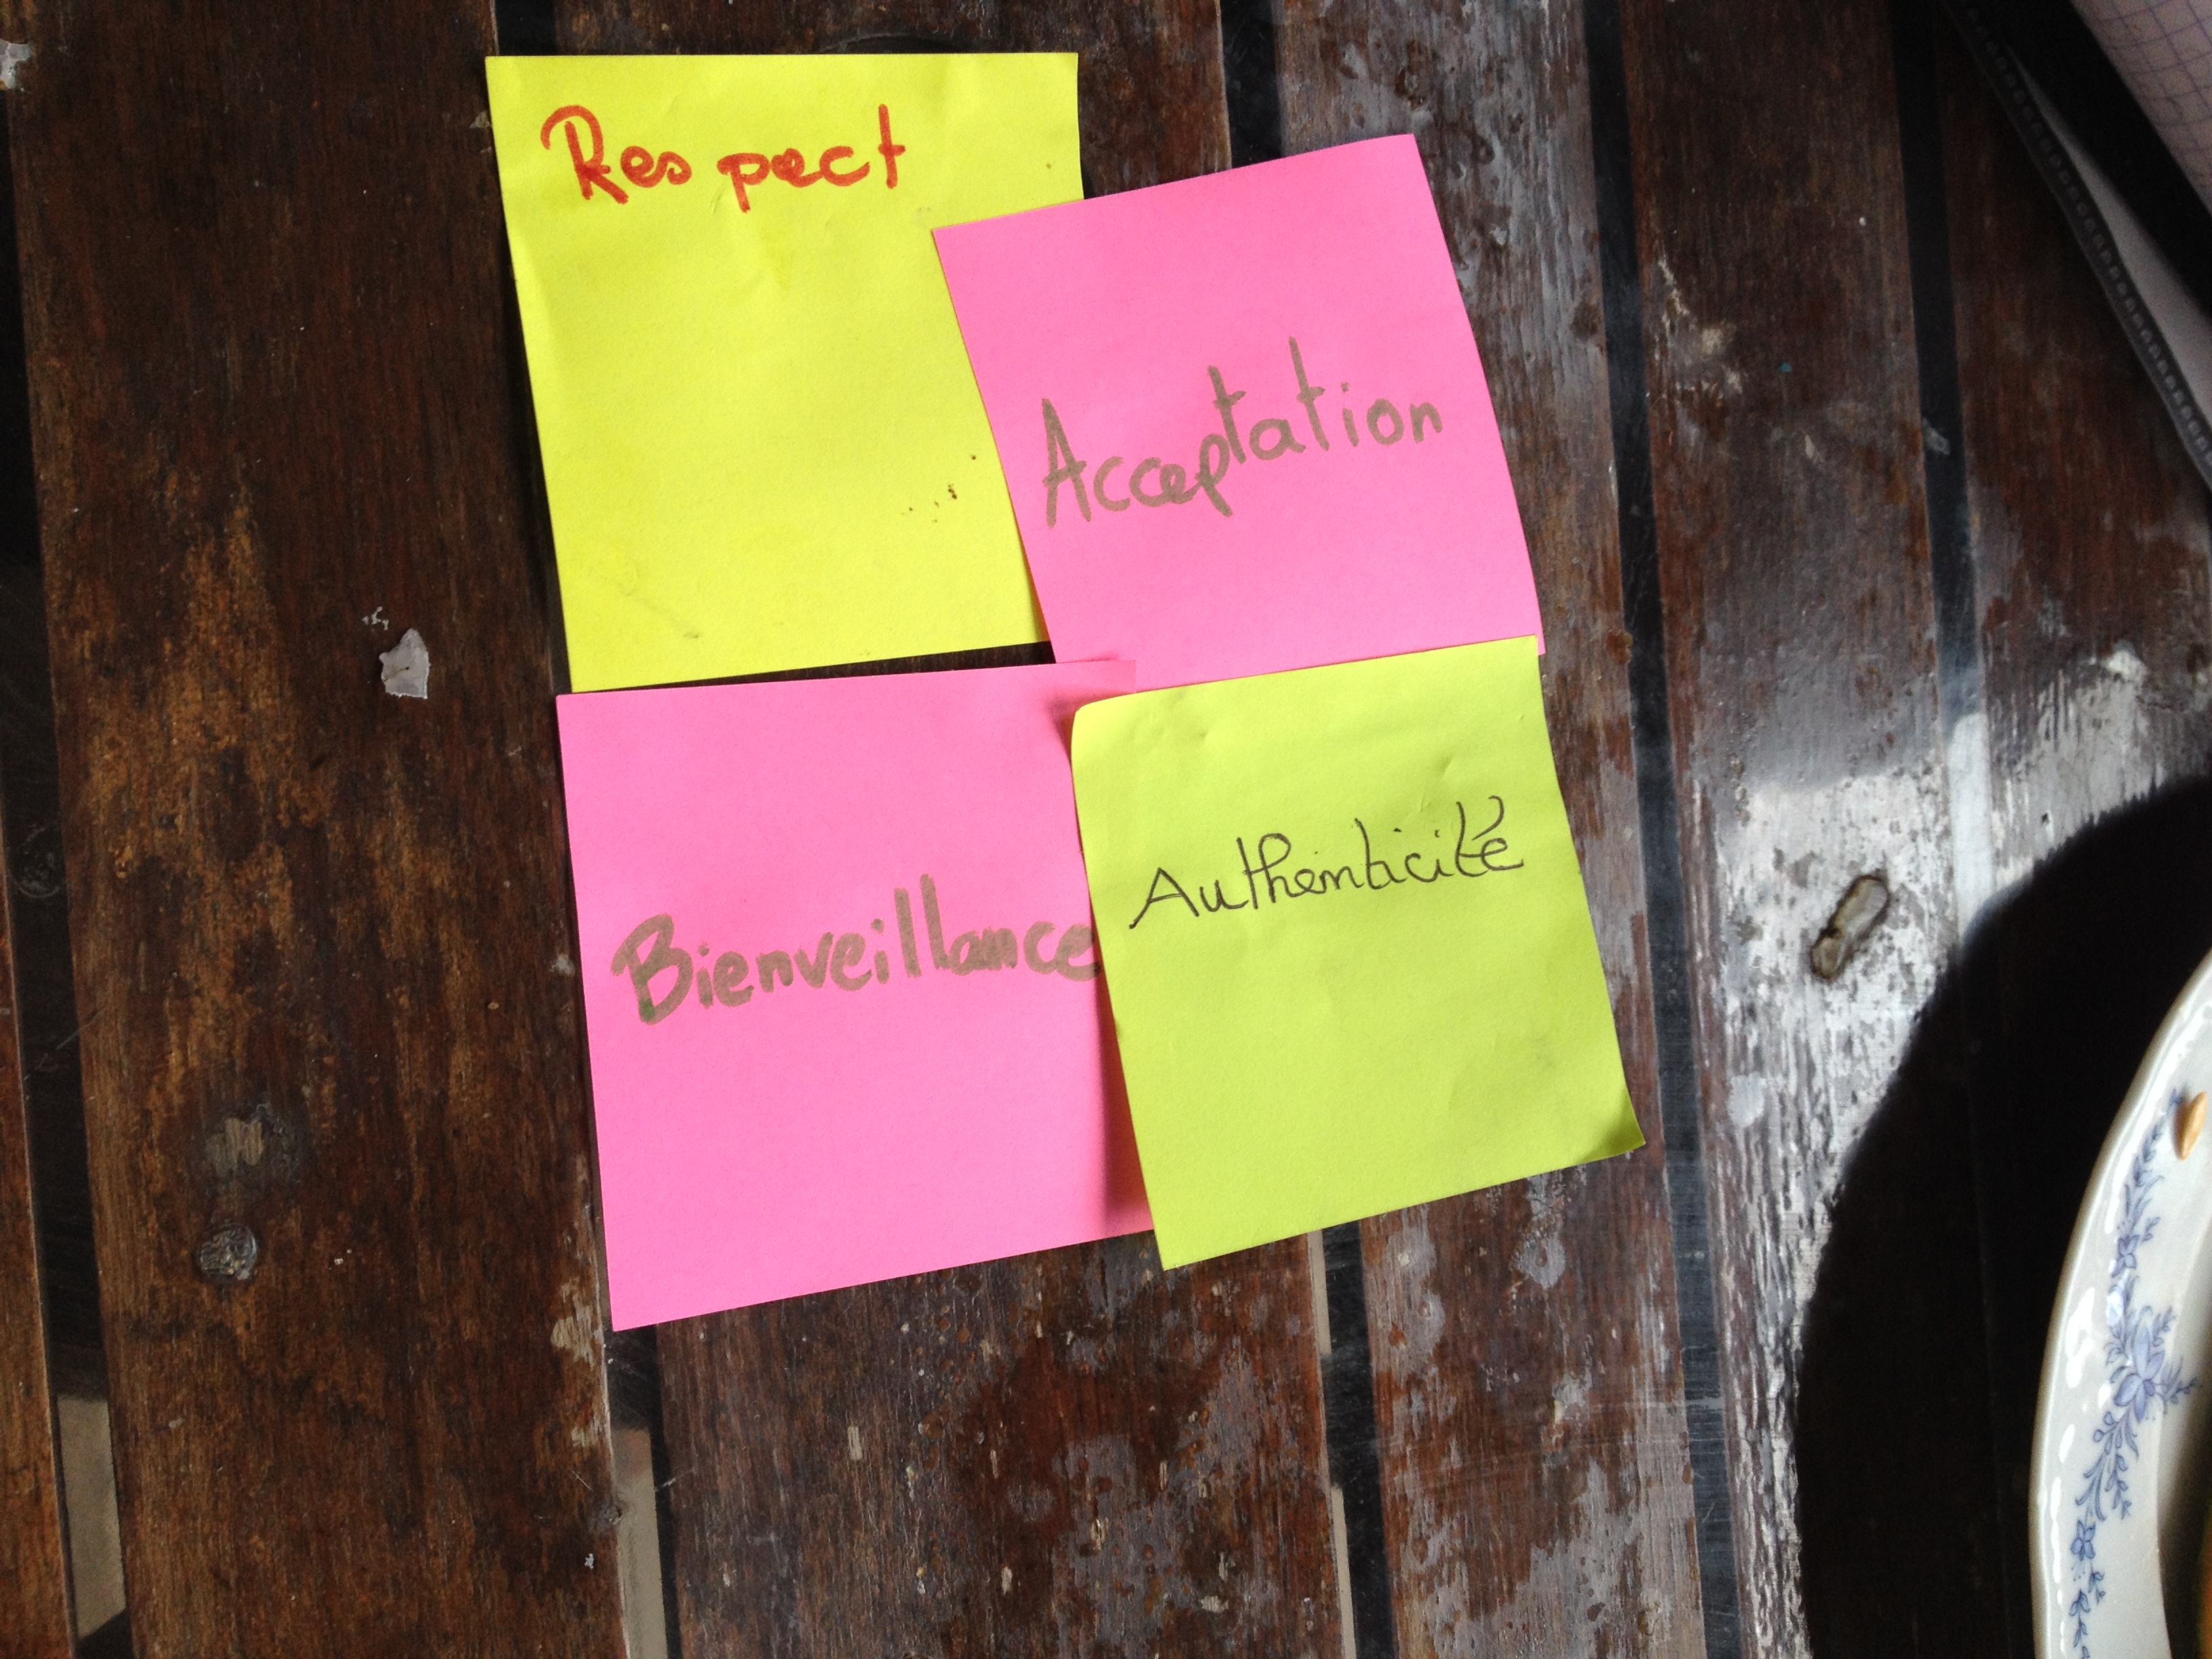 Respect
Acceptation
Bienveillance
Authenticité